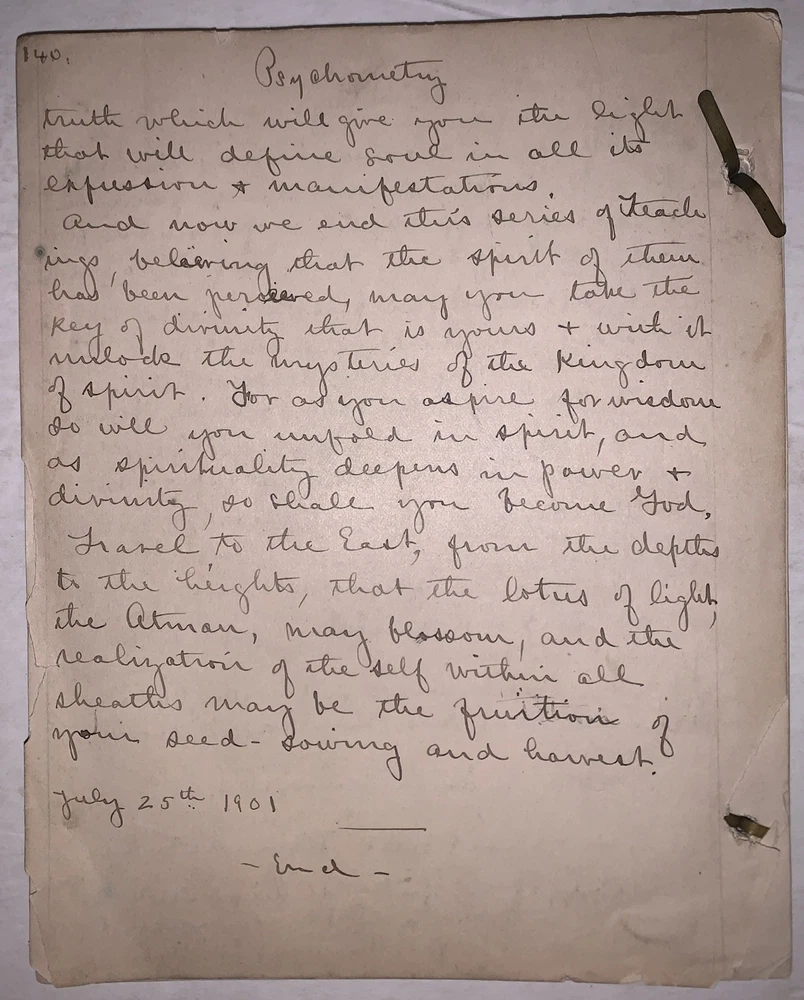 140.
Psychometry
truth which will give you the light
that will define soul in all its
expression & manifestations.
And now we end this series of teach
ings, believing that the spirit of them
has been percieved, may you take the
key of divinity that is yours & with it
unlock the mysteries of the Kingdom
of spirit. For as you aspire for wisdom
so will you unfold in spirit, and
as spirituality deepens in power &
divinity, so shall you become God.
Travel to the East, from the depths
to the heights, that the lotus of light,
the Atman, may blossom, and the
realization of the self within all
sheaths may be the fruition of
your seed-sowing and harvest.
July 25th 1901
- End -